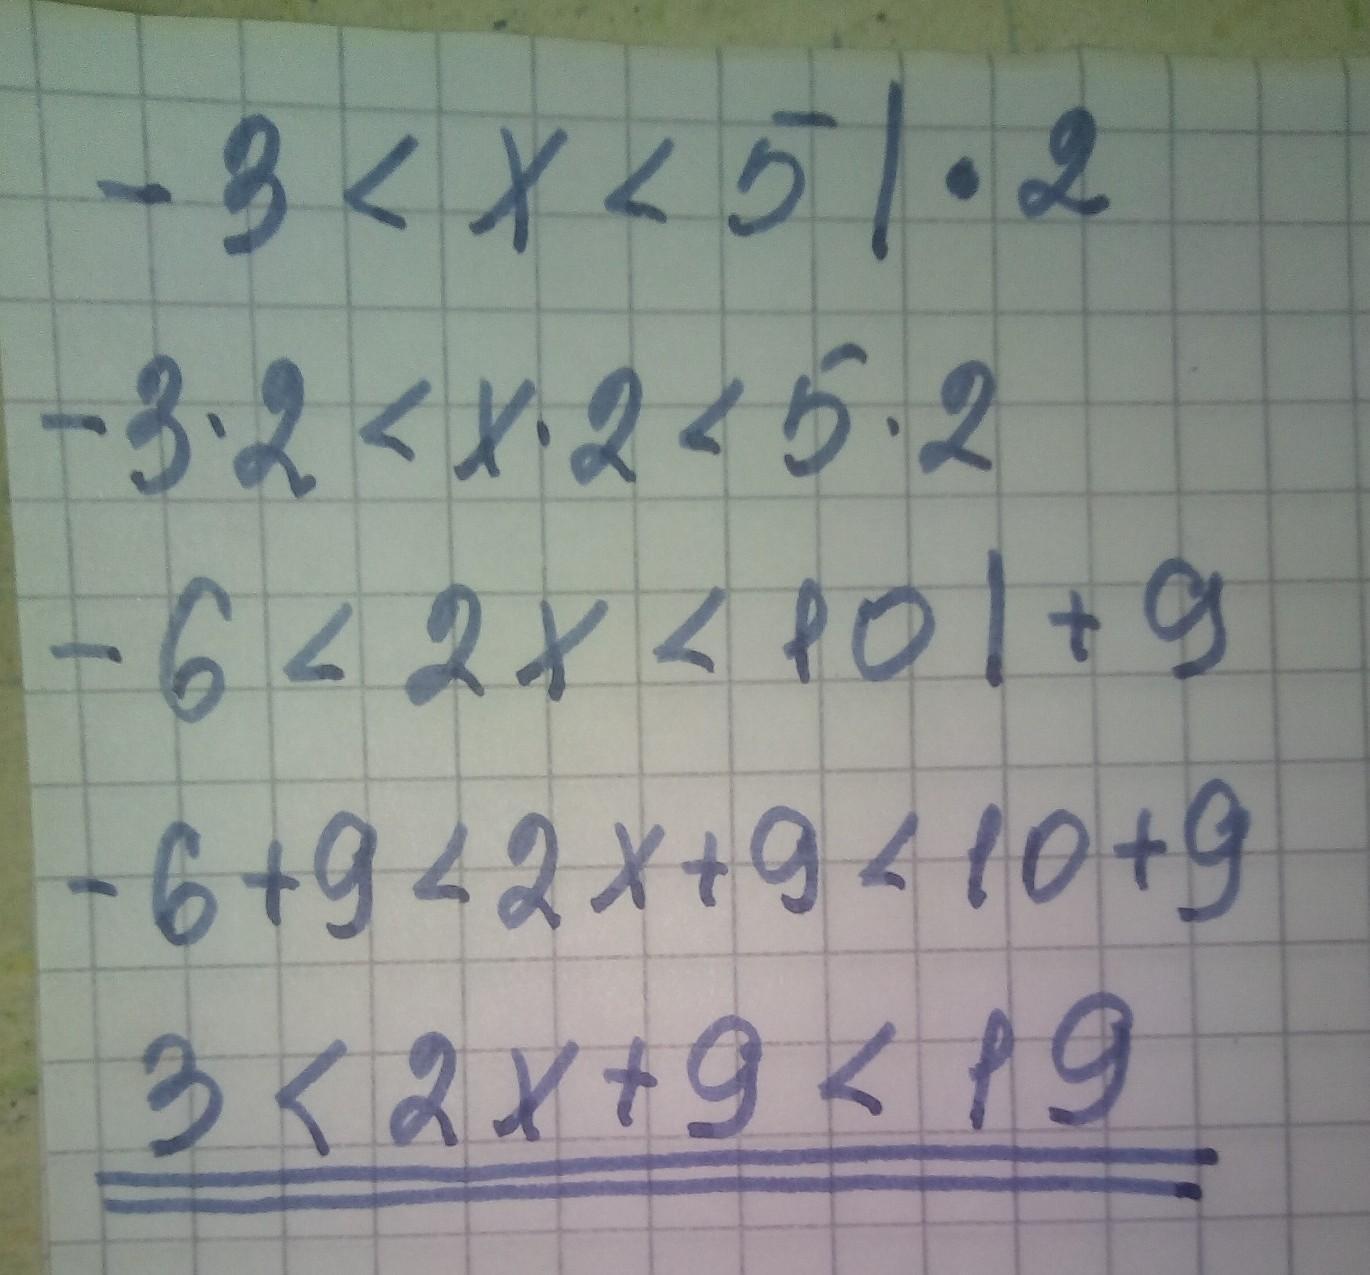 -3 < x < 5 | · 2
-3·2 < x·2 < 5·2
-6 < 2x < 10 | + 9
-6+9 < 2x+9 < 10+9
3 < 2x+9 < 19